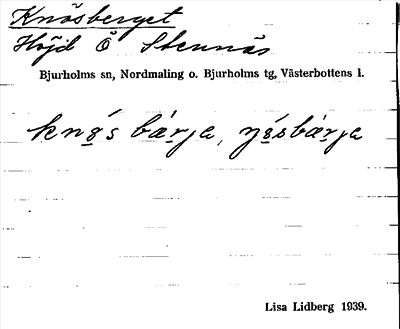 Knösberget
Höjd Ö Stennäs
Bjurholms sn, Nordmaling o. Bjurholms tg, Västerbottens l.
Lisa Lidberg 1939.